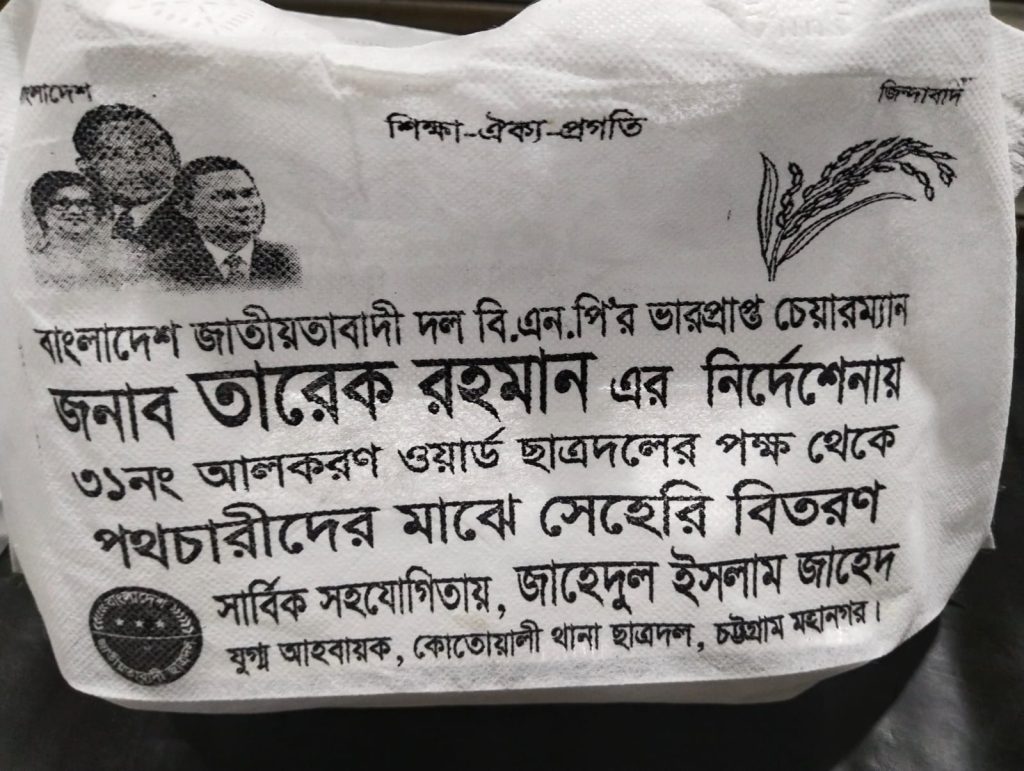 বাংলাদেশ
জিন্দাবাদ
শিক্ষা-ঐক্য-প্রগতি
বাংলাদেশ জাতীয়তাবাদী দল বি.এন.পি'র ভারপ্রাপ্ত চেয়ারম্যান
জনাব তারেক রহমান এর নির্দেশেনায়
৩১নং আলকরণ ওয়ার্ড ছাত্রদলের পক্ষ থেকে
পথচারীদের মাঝে সেহেরি বিতরণ
সার্বিক সহযোগিতায়, জাহেদুল ইসলাম জাহেদ
যুগ্ম আহবায়ক, কোতোয়ালী থানা ছাত্রদল, চট্টগ্রাম মহানগর।